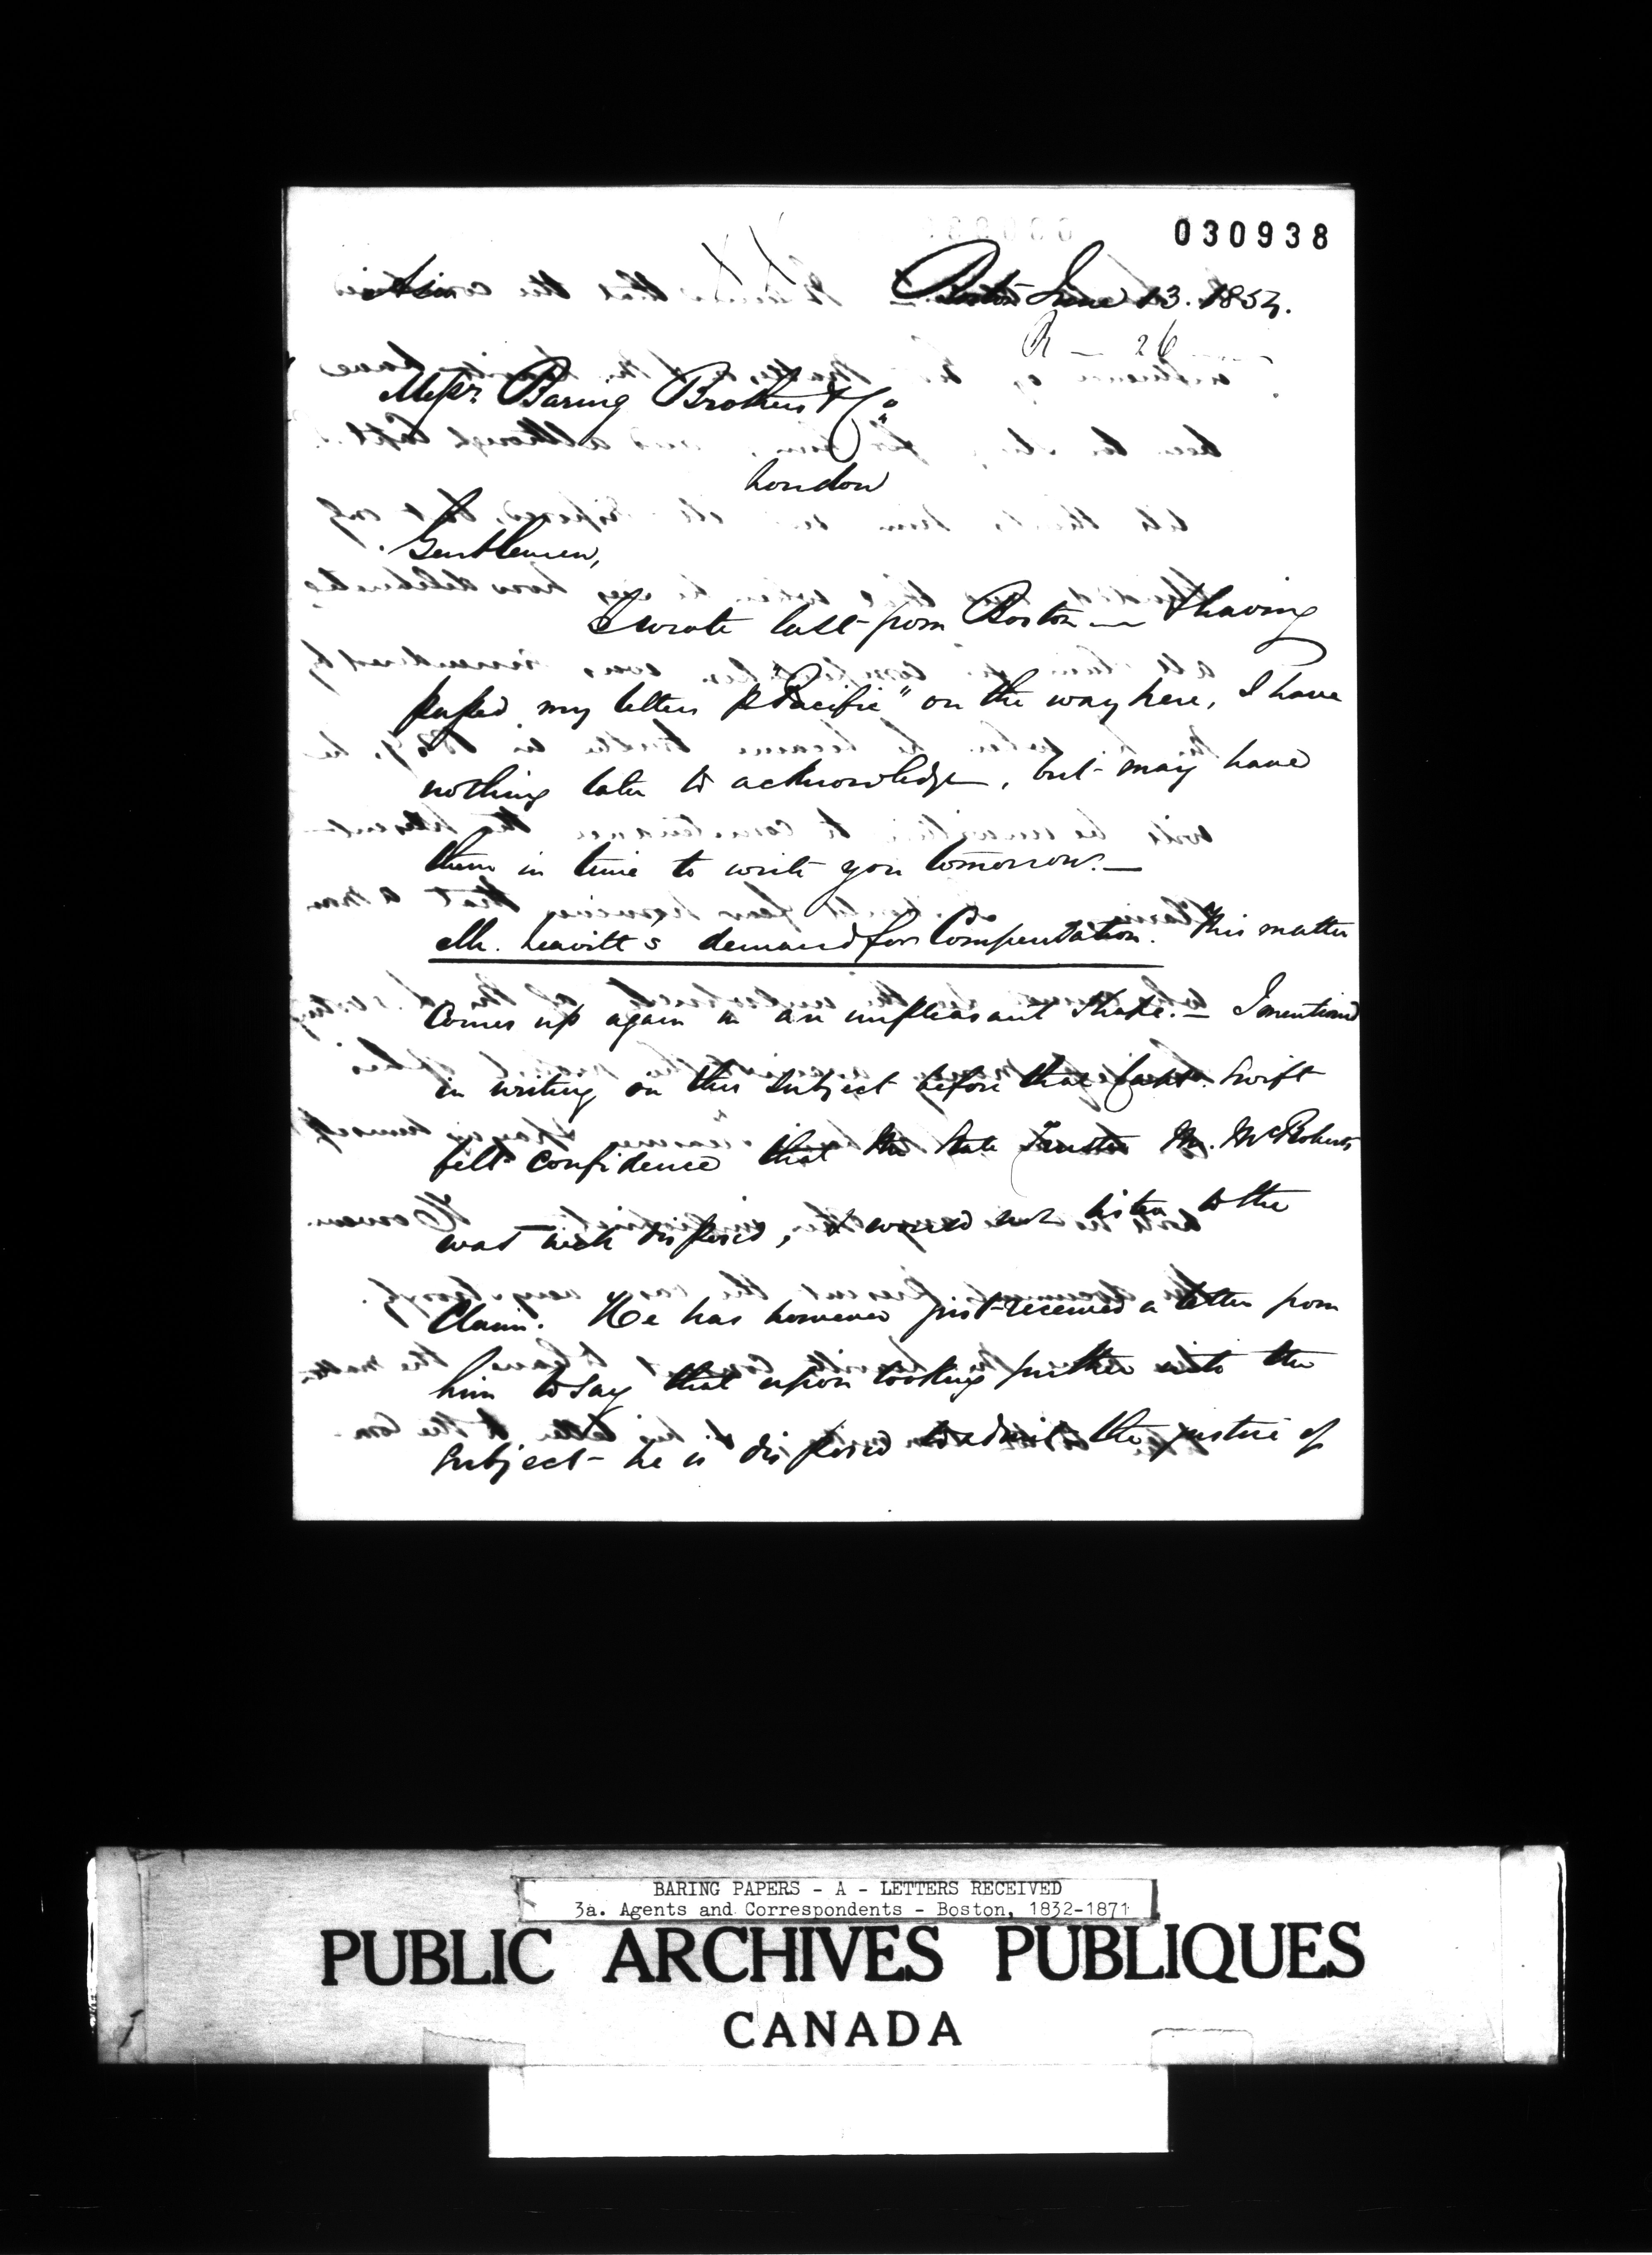 030938
Boston June 13. 1853.
R — 26
Messrs. Baring Brothers & Co
London
Gentlemen,
I wrote last from Boston — & having
passed my letters p "Pacific" on the way here, I have
nothing later to acknowledge, but may have
them in time to write you tomorrow. —
Mr. Leavitt's demand for Compensation. This matter
Comes up again in an unpleasant shape. — I mentioned
in writing on this subject before that Capt. Swift
felt confidence that the State Trustee Mr. McRoberts
was well disposed, & would not listen to the
Claim. He has however just received a letter from
him to say that upon looking further into the
Subject he is disposed to admit the justice of
BARING PAPERS - A - LETTERS RECEIVED
3a. Agents and Correspondents - Boston, 1832-1871
PUBLIC ARCHIVES PUBLIQUES
CANADA